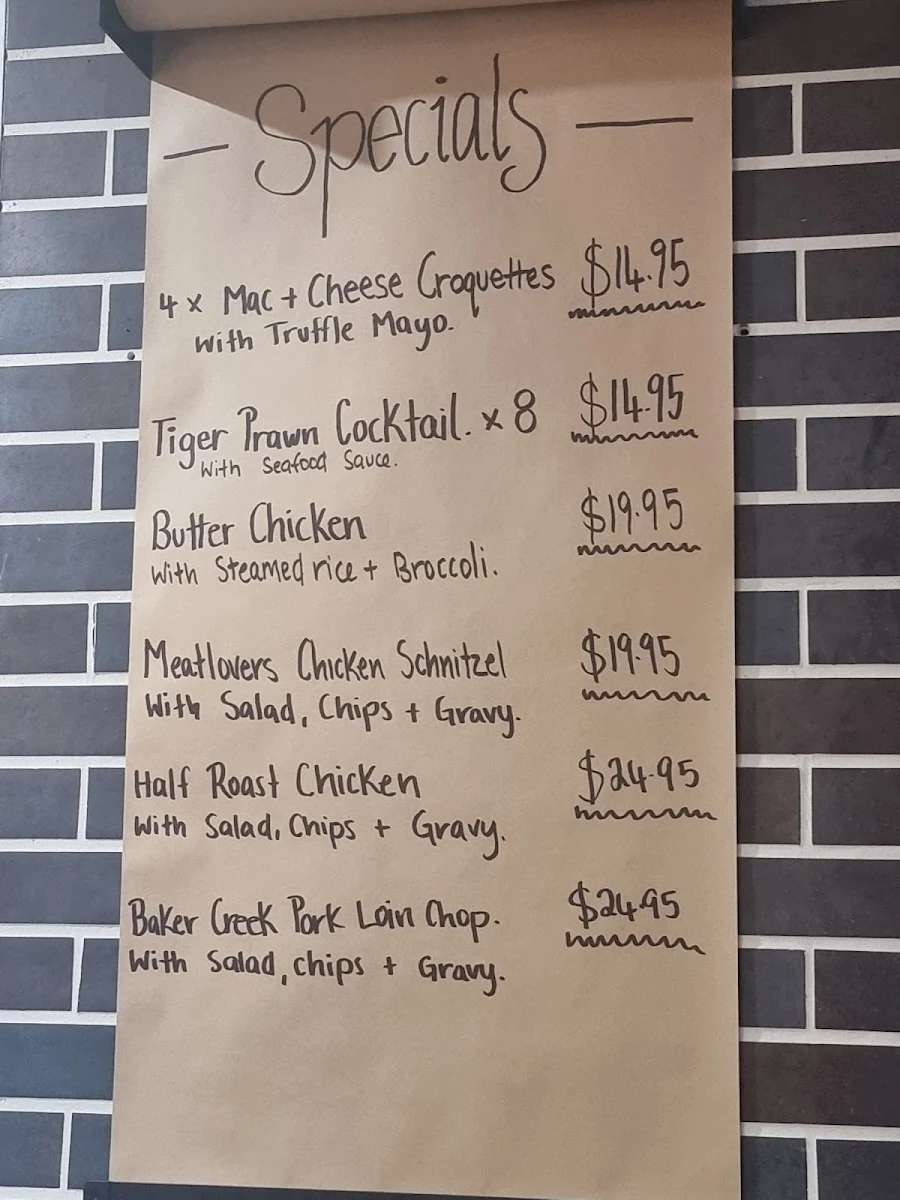 — Specials —
4 x Mac + Cheese Croquettes $14.95
with Truffle Mayo.
Tiger Prawn Cocktail. x 8 $14.95
With Seafood Sauce.
Butter Chicken $19.95
With Steamed rice + Broccoli.
Meatlovers Chicken Schnitzel $19.95
With Salad, Chips + Gravy.
Half Roast Chicken $24.95
With Salad, Chips + Gravy.
Baker Creek Pork Loin Chop. $24.95
With Salad, chips + Gravy.